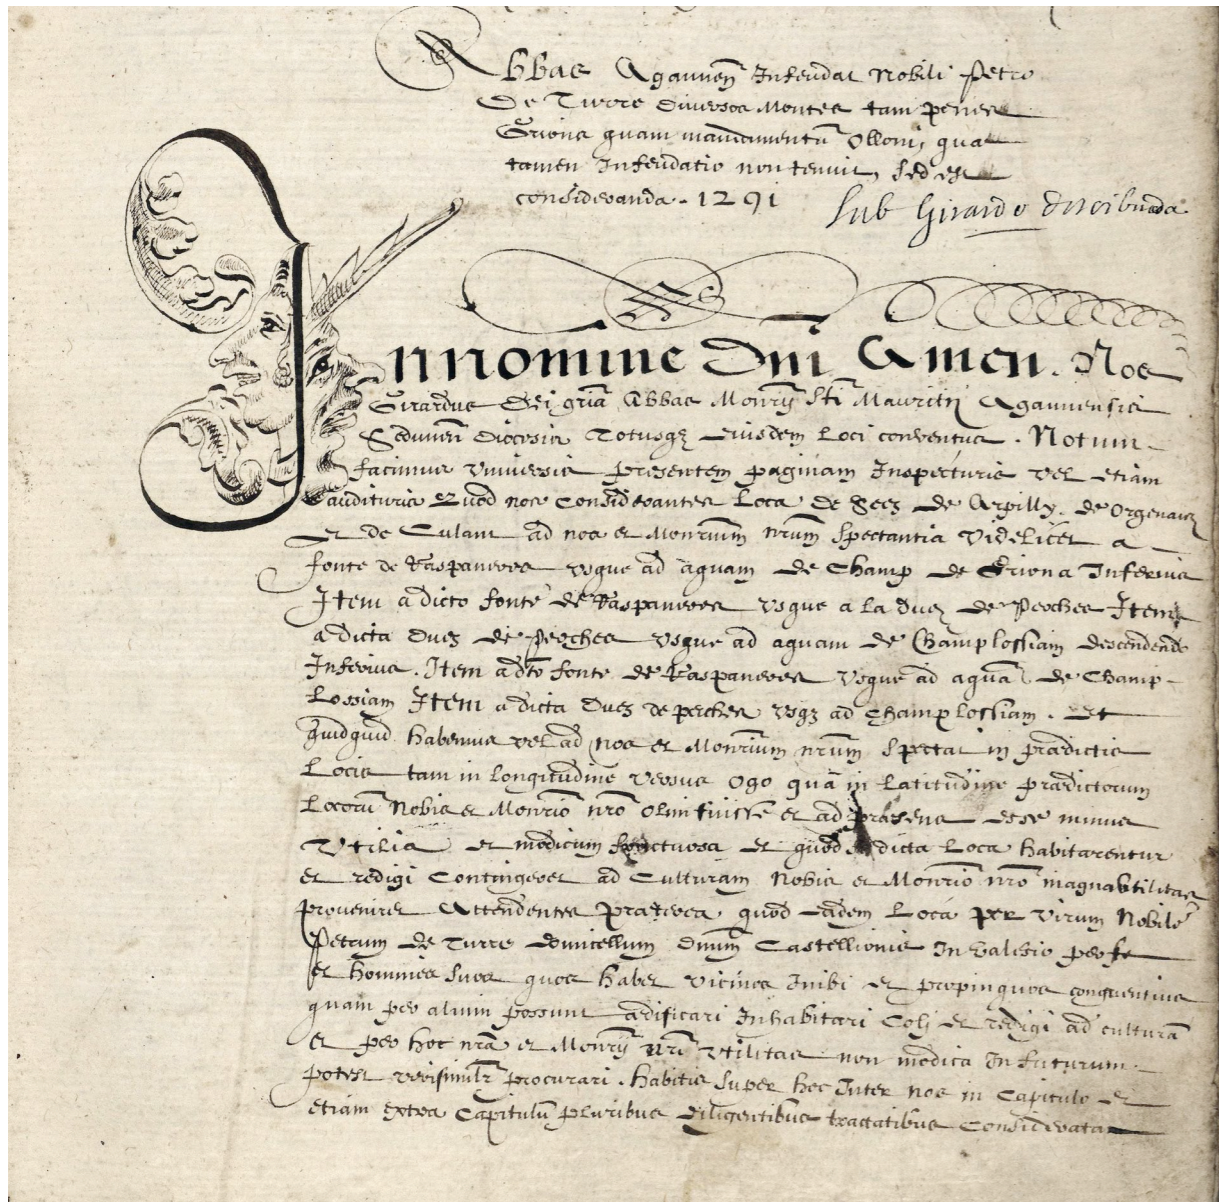 Abbas Agaunen̄ Infeudat Nobili Petro
De Turre diversos Montes tam penes
Griona quam mandamentū Olloni, quae
tamen Infeudatio non tenuit, sed est
consideranda. 1291
Sub Girardo describenda
In nomine Dnī Amen. Nos
Girardus Dei grīa Abbas Monrÿ Stī Mauritÿ Agaunensis
Sedunen̄ Diocesis Totusqz eiusdem Loci conventus. Notum
facimus Universis presentem paginam Inspecturis vel etiam
audituris Quod nos Considerantes Loca de Secz de Arpilly. de Orgenaux
et de Culant ad nos et Monrīum nrūm spectantia Videlicet a
fonte de Raspaneres usque ad aquam de Champ de Griona Inferius
Item a dicto fonte de Raspaneres usque a la Duez de Perches Item
a dicta Duez de Perches usque ad aquam de Champlossiam descendendo
Inferius. Item a dcto fonte de Raspaneres usque ad aquā de Champ-
Lossiam Item a dicta Duez de perches usqz ad Champlossiam. Et
quidquid habemus vel ad nos et Monrīum nrūm spectat in prædictis
Locis tam in longitudine versus Ogo quā in latitudine prædictorum
Locorū Nobis et Monrīo nrō olim fuisse et ad præsens esse minus
Utilia et modicum fructuosa et quod dicta Loca habitarentur
et redigi Contingeret ad Culturam Nobis et Monrīo nrō magna utilitas
proveniret Attendentes præterea quod eadem Loca per Virum Nobilē
Petrum de Turre domicellum dnūm Castellionis In Valesio per se
et homines suos quos habet vicinos Inibi et propinquos congruentius
quam per alium possunt ædificari Inhabitari Colj et redigi ad culturā
et per hoc nrā et Monrÿ nrī utilitas non modica In futurum
potest verisimilr procurari. habitis super hoc Inter nos in Capitulo et
etiam extra Capitulū pluribus diligentibus tractatibus Considerata